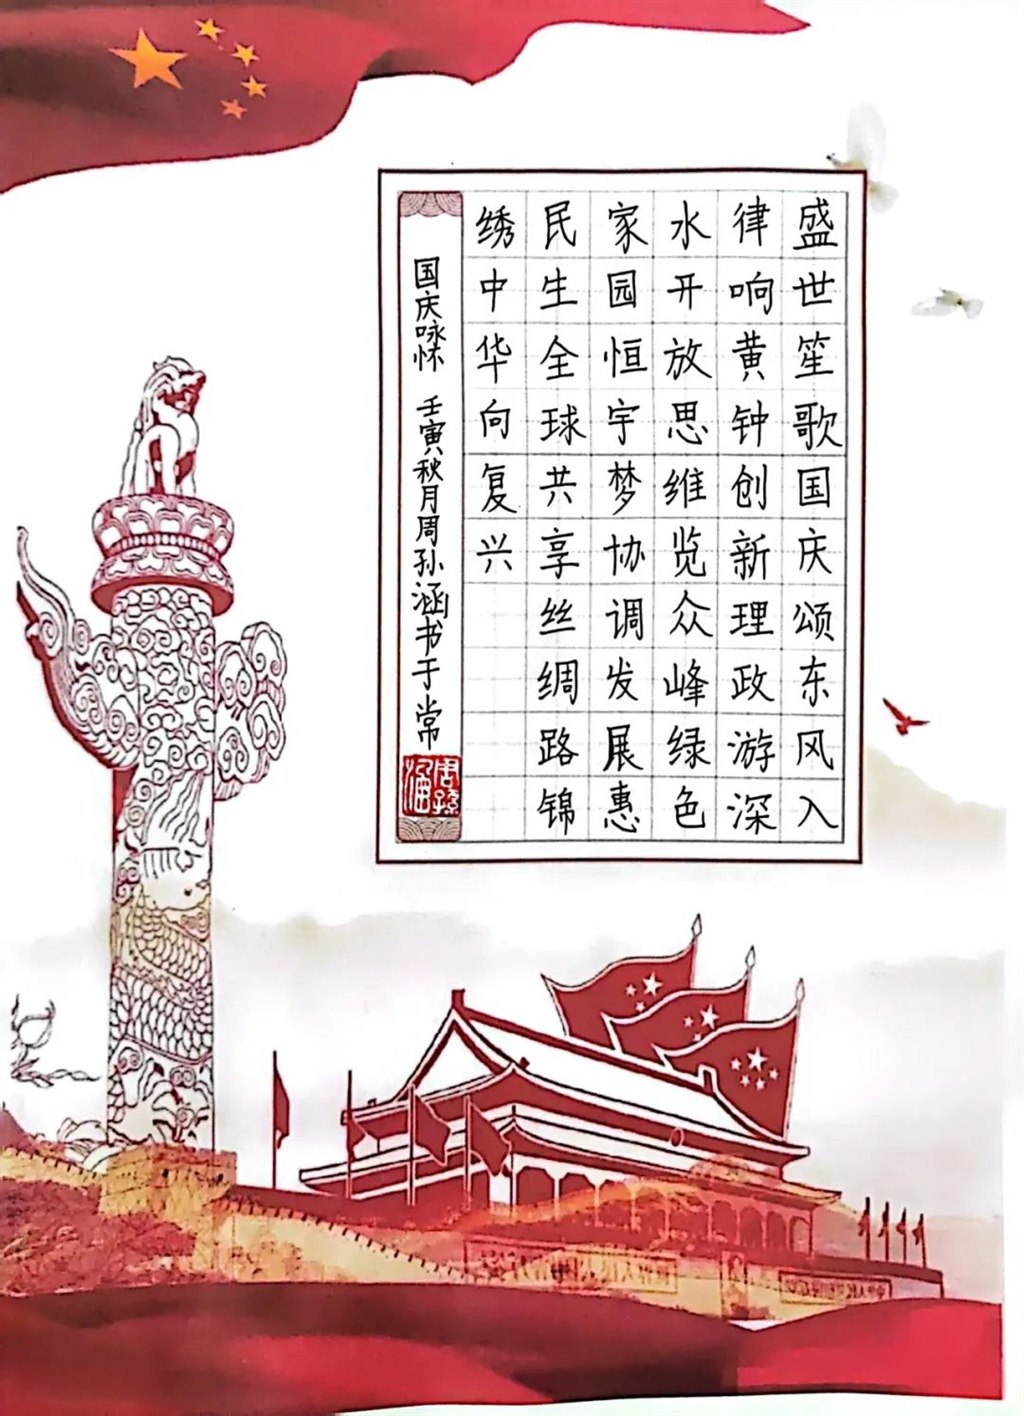 盛世笙歌国庆颂东风入
律响黄钟创新理政游深
水开放思维览众峰绿色
家园恒宇梦协调发展惠
民生全球共享丝绸路锦
绣中华向复兴
国庆咏怀 壬寅秋月周孙涵书于常
周孙涵